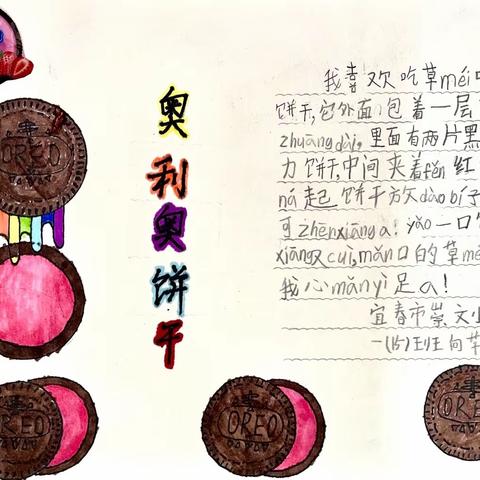 奥利奥饼干
我喜欢吃草méi
饼干,它外面包着一层
zhuāng dài,里面有两片黑
力饼干,中间夹着fěn红
ná起饼干放dào bí子
可zhēn xiāng a!yǎo一口
xiāng又cuì,mǎn口的草mé
我心mǎn yì足a!
宜春市崇文
一(15)班王向苹
OREO
OREO
OREO
OREO